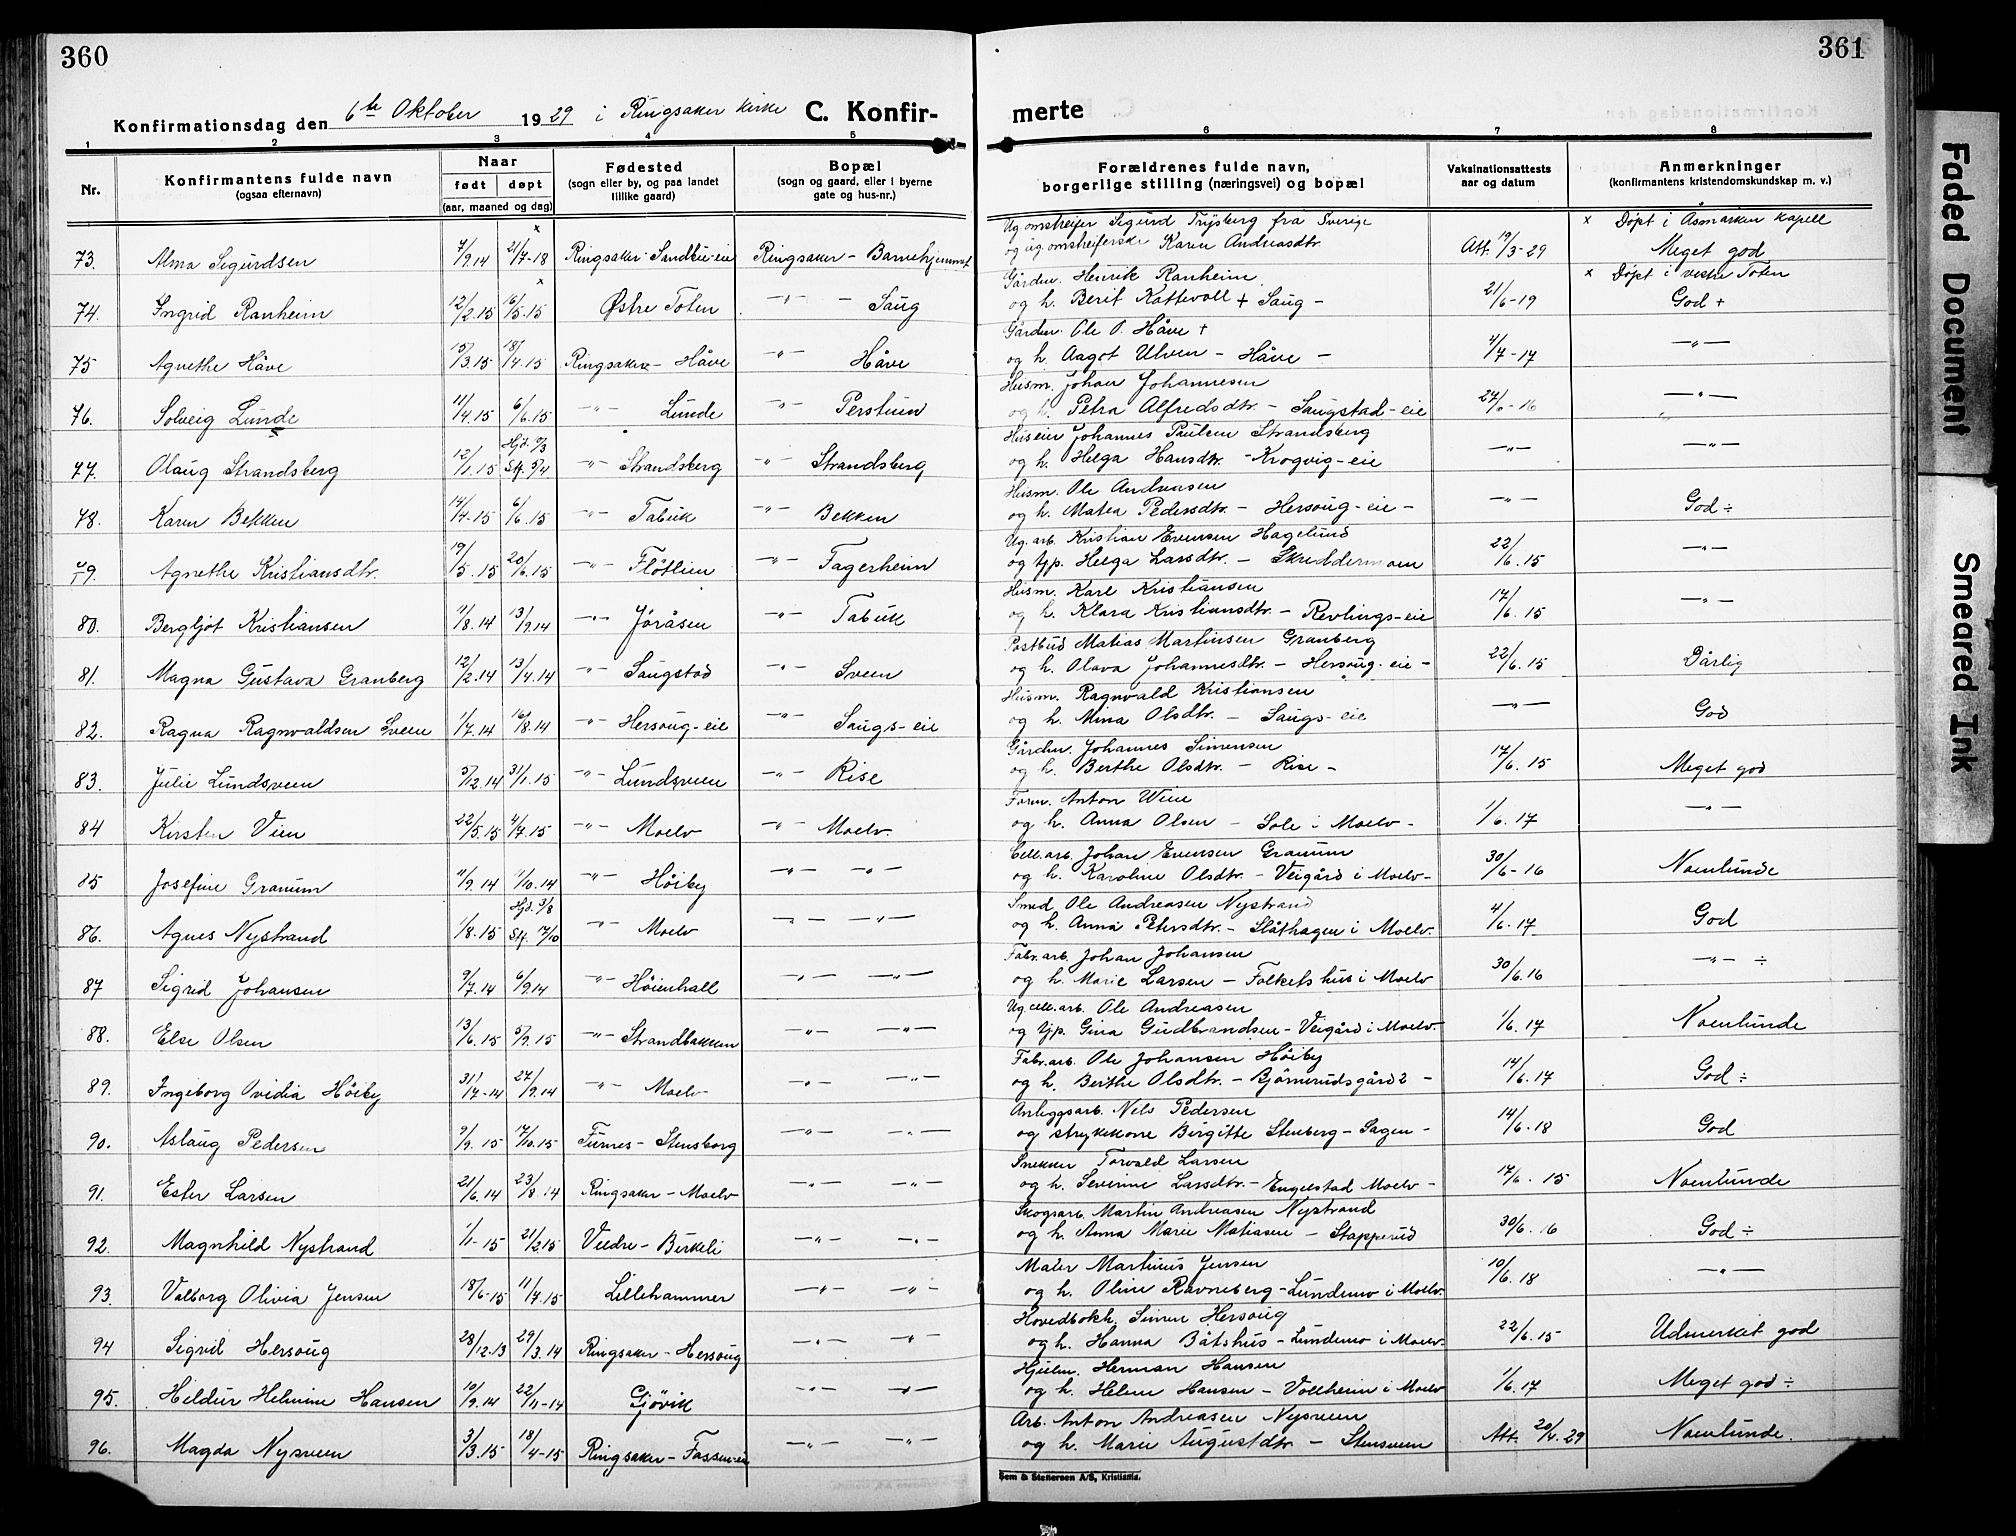 360
361
Konfirmationsdag den 6te Oktober 1929 i Ringsaker kirke C. Konfir-
merte
1 2 3 4 5
6 7 8
Nr. Konfirmantens fulde navn (ogsaa efternavn) Naar født døpt (aar, maaned og dag) Fødested (sogn eller by, og paa landet tillike gaard) Bopæl (sogn og gaard, eller i byerne gate og hus-nr.)
Forældrenes fulde navn, borgerlige stilling (næringsvei) og bopæl Vaksinationsattests aar og datum Anmerkninger (konfirmantens kristendomskundskap m. v.)
Ug. omstreifer Sigurd Trysberg fra Sverige x Døpt i Åsmarken kapell
73. Alma Sigurdsen 7/9.14 x 21/7-18 Ringsaker - Sandbu-eie Ringsaker - Barnehjemmet og ug. omstreiferske Karen Andreasdtr. Att. 19/3-29 Meget god
Gårdm. Henrik Ranheim x Døpt i vestre Toten
74. Ingrid Ranheim 12/2.15 x 16/5.15 Østre Toten -"- - Saug og h. Berit Kattevoll + Saug - 21/6-19 God +
Gårdm. Ole O. Håve +
75 Agnethe Håve 15/3.15 18/4.15 Ringsaker - Håve -"- Håve og h. Aagot Ulven - Håve - 4/7-17 -"-
Husm. Johan Johannesen
76. Solveig Lunde 11/4.15 6/6.15 -"- Lunde -"- Perstuen og h. Petra Alfredsdtr. - Saugstad-eie 27/6-16 -"-
Huseier Johannes Paulsen Strandsberg
77. Olaug Strandsberg 12/1.15 Hjd. 7/3 Stf. 5/4 -"- Strandsberg -"- Strandsberg og h. Helga Hansdtr. - Krogvig-eie -"- -"-
Husm. Ole Andreasen
78. Karen Bekken 14/4.15 6/6.15 -"- Tabuk -"- Bekken og h. Matea Pedersdtr. - Hersoug-eie - -"- God ÷
Ug. arb. Kristian Evensen Hagelund
79. Agnethe Kristiansdtr. 19/5.15 20/6.15 -"- Fløtlien -"- Fagerheim og tjp. Helga Larsdtr. - Skreddermoen 22/6.15 -"-
Husm. Karl Kristiansen
80. Bergljot Kristiansen 11/8.14 13/9.14 -"- Jøråsen -"- Tabuk og h. Klara Kristiansdtr. - Revlings-eie 17/6.15 -"-
Postbud Matias Martinsen Granberg
81. Magna Gustava Granberg 12/2.14 13/4.14 -"- Saugstad -"- Sveen og h. Olava Johannesdtr. - Hersoug-eie - 22/6.15 Dårlig
Husm. Ragnvald Kristiansen
82. Ragna Ragnvaldsen Sveen 1/7.14 16/8.14 -"- Hersoug-eie -"- Saugs-eie og h. Mina Olsdtr. - Saugs-eie -"- God
Gårdm. Johannes Simensen
83. Julie Lundsveen 5/12.14 31/1.15 -"- Lundsveen -"- Rise og h. Berthe Olsdtr. - Rise - 17/6.15 Meget god
Form. Anton Wien
84 Kirsten Vien 22/5.15 4/7.15 -"- Moelv -"- Moelv. og h. Anna Olsen - Sole i Moelv - 1/6.17 -"-
Cell. arb. Johan Evensen Granum
85 Josefine Granum 11/9.14 11/10.14 -"- Høiby -"- -"- og h. Karoline Olsdtr. - Veigård i Moelv - 30/6-16 Noenlunde
Smed Ole Andreasen Nystrand
86. Agnes Nystrand 1/8.15 Hjd. 3/8 Stf. 17/10 -"- Moelv -"- -"- og h. Anna Petersdtr. - Slåthagen i Moelv. 4/6.17 God
Fabr. arb. Johan Johansen
87 Sigrid Johansen 9/7.14 6/9.14 -"- Høienhall -"- -"- og h. Marie Larsen - Folkets hus i Moelv 30/6.16 -"- ÷
Ug. cell. arb. Ole Andreasen
88. Else Olsen 13/6.15 5/9.15 -"- Strandbakken -"- -"- og tjp. Gina Gudbrandsen - Veigård i Moelv. 1/6.17 Noenlunde
Fabr. arb. Ole Johansen Høiby
89. Ingeborg Ovidia Høiby 31/7-14 27/9.14 -"- Moelv -"- -"- og h. Berthe Olsdtr. - Bjørnerudsgård 2 - 14/6.17 God ÷
Anleggsarb. Nels Pedersen
90. Aslaug Pedersen 9/9.15 17/10.15 Furnes - Stensborg -"- -"- og strykekone Birgitte Stenberg - Sagen - 14/6-18 God
Snekker Torvald Larsen
91. Ester Larsen 21/6.14 23/8.14 Ringsaker - Moelv -"- -"- og h. Severine Larsdtr. - Engelstad Moelv - 17/6.15 Noenlunde
Skogsarb. Martin Andreasen Nystrand
92. Magnhild Nystrand 1/1-15 21/2.15 Veldre - Birkeli -"- -"- og h. Anna Marie Matiasen - Stapperud 30/6.16 God ÷
Maler Martinus Jensen
93. Valborg Olivia Jensen 18/6-15 11/7.15 Lillehammer -"- -"- og h. Oline Ravneberg - Lundemo i Moelv. 10/6.18 -"-
Hovedbokh. Simen Hersoug
94 Sigrid Hersoug 28/12.13 29/3.14 Ringsaker - Hersoug -"- -"- og h. Hanna Båtshus - Lundemo i Moelv. 22/6.15 Udmerket god
Hjulm. Herman Hansen
95. Heldur Helmine Hansen 10/9.14 22/11-14 Gjøvik -"- -"- og h. Helene Hansen - Vollheim i Moelv 1/6.17 Meget god ÷
Arb. Anton Andreasen Nysveen
96. Magda Nysveen 3/3.15 18/4-15 Ringsaker - Fossen-eie -"- -"- og h. Marie Augustdtr. - Stensveen Att. 20/4.29 Noenlunde.
Sem & Stenersen A/S, Kristiania.
Faded Document
Smeared Ink